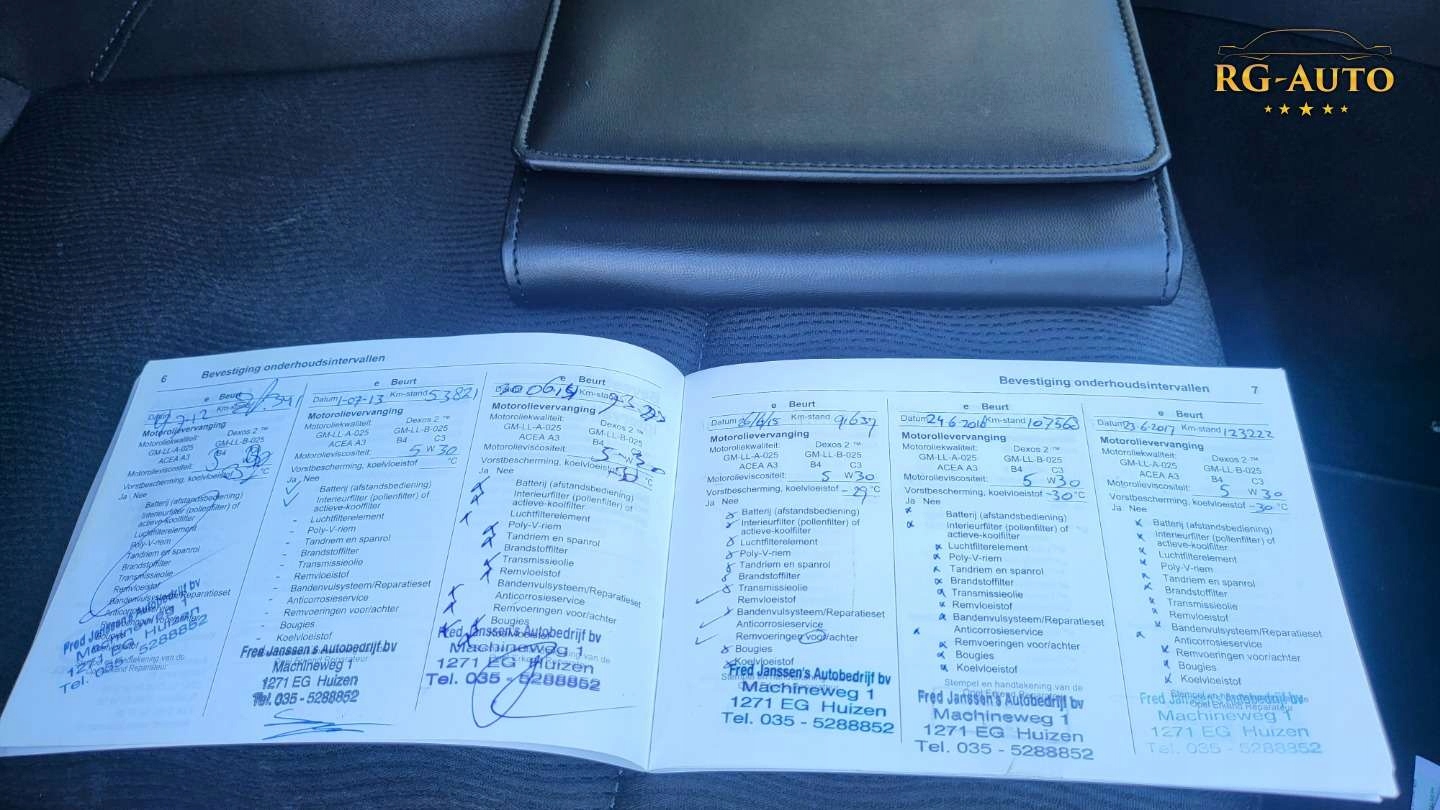 RG-AUTO
6 Bevestiging onderhoudsintervallen
e Beurt
Km-stand
Motorolievervanging
Motoroliekwaliteit: Dexos 2 ™
GM-LL-A-025 GM-LL-B-025
ACEA A3 B4
Motorolieviscositeit: 5
Vorstbescherming, koelvloeistof
Ja Nee
Batterij (afstandsbediening)
Interieurfilter (pollenfilter) of
actieve-koolfilter
Luchtfilterelement
Poly-V-riem
Tandriem en spanrol
Brandstoffilter
Transmissieolie
Remvloeistof
Bandenvulsysteem/Reparatieset
Anticorrosieservice
Fred Janssen's Autobedrijf bv
Machineweg 1
1271 EG Huizen
Tel. 035 - 5288852
e Beurt
Datum 1-07-13 Km-stand 53821
Motorolievervanging
Motoroliekwaliteit: Dexos 2 ™
GM-LL-A-025 GM-LL-B-025
ACEA A3 B4 C3
Motorolieviscositeit: 5 W 30
Vorstbescherming, koelvloeistof °C
Ja Nee
Batterij (afstandsbediening)
Interieurfilter (pollenfilter) of
actieve-koolfilter
Luchtfilterelement
Poly-V-riem
Tandriem en spanrol
Brandstoffilter
Transmissieolie
Remvloeistof
Bandenvulsysteem/Reparatieset
Anticorrosieservice
Remvoeringen voor/achter
Bougies
Koelvloeistof
Fred Janssen's Autobedrijf bv
Machineweg 1
1271 EG Huizen
Tel. 035 - 5288852
e Beurt
Km-stand
Motorolievervanging
Motoroliekwaliteit: Dexos 2 ™
GM-LL-A-025 GM-LL-B-025
ACEA A3 B4 C3
Motorolieviscositeit: 5 W 30
Vorstbescherming, koelvloeistof °C
Ja Nee
Batterij (afstandsbediening)
Interieurfilter (pollenfilter) of
actieve-koolfilter
Luchtfilterelement
Poly-V-riem
Tandriem en spanrol
Brandstoffilter
Transmissieolie
Remvloeistof
Bandenvulsysteem/Reparatieset
Anticorrosieservice
Remvoeringen voor/achter
Bougies
Fred Janssen's Autobedrijf bv
Machineweg 1
1271 EG Huizen
Tel. 035 - 5288852
Bevestiging onderhoudsintervallen 7
e Beurt
Datum Km-stand 91637
Motorolievervanging
Motoroliekwaliteit: Dexos 2 ™
GM-LL-A-025 GM-LL-B-025
ACEA A3 B4 C3
Motorolieviscositeit: 5 W 30
Vorstbescherming, koelvloeistof -29 °C
Ja Nee
Batterij (afstandsbediening)
Interieurfilter (pollenfilter) of
actieve-koolfilter
Luchtfilterelement
Poly-V-riem
Tandriem en spanrol
Brandstoffilter
Transmissieolie
Remvloeistof
Bandenvulsysteem/Reparatieset
Anticorrosieservice
Remvoeringen voor/achter
Bougies
Koelvloeistof
Fred Janssen's Autobedrijf bv
Machineweg 1
1271 EG Huizen
Tel. 035 - 5288852
e Beurt
Datum 24-6-2016 Km-stand 107563
Motorolievervanging
Motoroliekwaliteit: Dexos 2 ™
GM-LL-A-025 GM-LL-B-025
ACEA A3 B4 C3
Motorolieviscositeit: 5 W 30
Vorstbescherming, koelvloeistof -30 °C
Ja Nee
Batterij (afstandsbediening)
Interieurfilter (pollenfilter) of
actieve-koolfilter
Luchtfilterelement
Poly-V-riem
Tandriem en spanrol
Brandstoffilter
Transmissieolie
Remvloeistof
Bandenvulsysteem/Reparatieset
Anticorrosieservice
Remvoeringen voor/achter
Bougies
Koelvloeistof
Stempel en handtekening van de
Opel Erkend Reparateur
Fred Janssen's Autobedrijf bv
Machineweg 1
1271 EG Huizen
Tel. 035 - 5288852
e Beurt
Datum 23-6-2017 Km-stand 123222
Motorolievervanging
Motoroliekwaliteit: Dexos 2 ™
GM-LL-A-025 GM-LL-B-025
ACEA A3 B4 C3
Motorolieviscositeit: 5 W 30
Vorstbescherming, koelvloeistof -30 °C
Ja Nee
Batterij (afstandsbediening)
Interieurfilter (pollenfilter) of
actieve-koolfilter
Luchtfilterelement
Poly-V-riem
Tandriem en spanrol
Brandstoffilter
Transmissieolie
Remvloeistof
Bandenvulsysteem/Reparatieset
Anticorrosieservice
Remvoeringen voor/achter
Bougies
Koelvloeistof
Stempel en handtekening van de
Opel Erkend Reparateur
Fred Janssen's Autobedrijf bv
Machineweg 1
1271 EG Huizen
Tel. 035 - 5288852